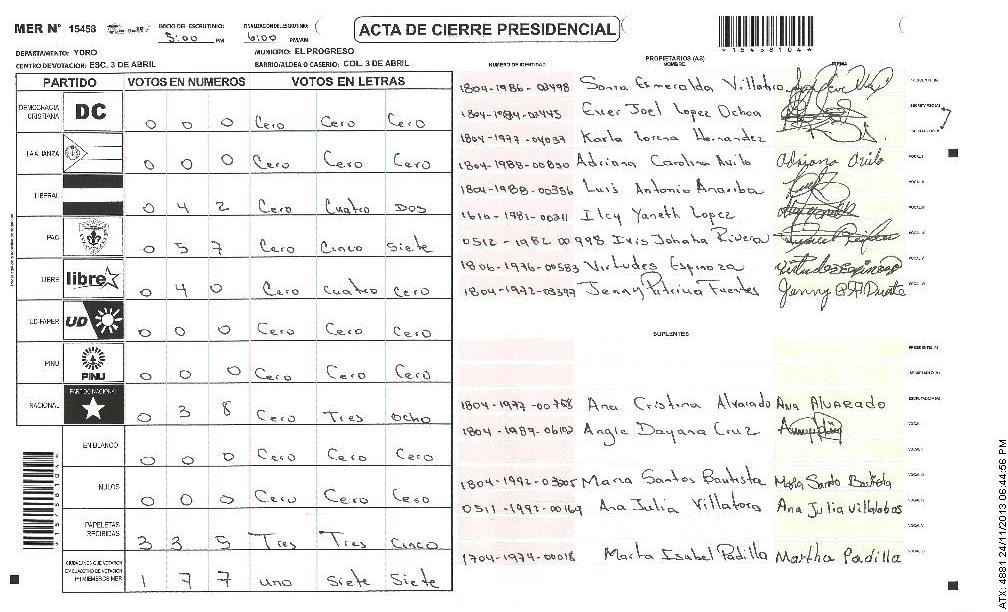 MER N° 15458 INICIO DEL ESCRUTINIO: 5:00 PM FINALIZACION DEL ESCRUTINIO: 6:00 PM/AM
ACTA DE CIERRE PRESIDENCIAL
DEPARTAMENTO: YORO MUNICIPIO: EL PROGRESO
CENTRO DE VOTACION: ESC. 3 DE ABRIL BARRIO/ALDEA O CASERIO: COL. 3 DE ABRIL
PARTIDO VOTOS EN NUMEROS VOTOS EN LETRAS
DEMOCRACIA CRISTIANA DC 0 0 0 Cero Cero Cero
LA ALIANZA 0 0 0 Cero Cero Cero
LIBERAL 0 4 2 Cero Cuatro Dos
PAC 0 5 7 Cero Cinco Siete
LIBRE libre 0 4 0 Cero cuatro cero
UD-FAPER UD 0 0 0 Cero Cero Cero
PINU PINU 0 0 0 Cero Cero Cero
NACIONAL PARTIDO NACIONAL 0 3 8 Cero Tres ocho
EN BLANCO 0 0 0 Cero Cero Cero
NULOS 0 0 0 Cero Cero Cero
PAPELETAS RECIBIDAS 3 3 5 Tres Tres Cinco
1 7 7 uno Siete Siete
NUMERO DE IDENTIDAD PROPIETARIOS (AS) NOMBRE FIRMA
1804-1986-03498 Sonia Esmeralda Villatro
1804-1984-03445 Ever Joel Lopez Ochoa
1804-1977-04037 Karla Lorena Hernandez
1804-1988-00830 Adriana Carolina Avila Adriana Avila
1804-1988-00356 Luis Antonio Anariba
1610-1981-00211 Ilcy Yaneth Lopez
0512-1982-00998 Iris Johana Rivera
1806-1976-00583 Virtudes Espinoza Virtudes Espinoza
1804-1972-03397 Jenny Patricia Fuentes
SUPLENTES
PRESIDENTE (A)
SECRETARIO (A)
1804-1977-00758 Ana Cristina Alvarado Ana Alvarado
1804-1987-06102 Angie Dayana Cruz
1804-1992-03005 Maria Santos Bautista Maria Santo Bautista
0511-1992-00169 Ana Julia Villatoro Ana Julia Villalobos
1704-1974-00018 Marta Isabel Padilla Martha Padilla
ATX: 4881 24/11/2013 06:44:56 PM